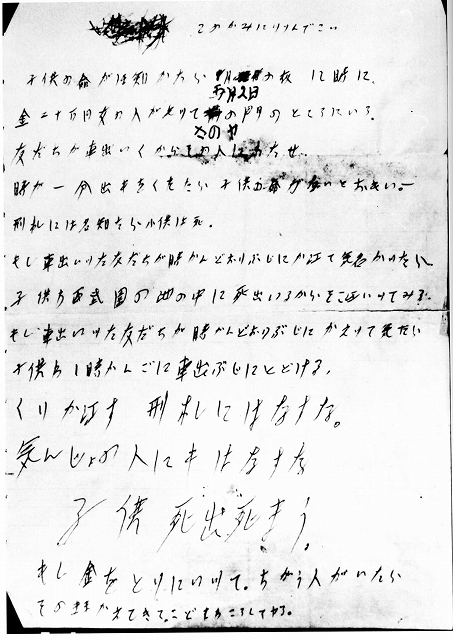 このかみにツツんでこい
子供の命がほ知かたら の夜12時に、
五月2日
金二十万円女の人がもツて の門のところにいろ。
さのヤ
友だちが車出いくからその人にわたせ。
時が一分出もをくれたら子供の命がないとおもい。―
刑札には名知たら小供は死。
もし車出いツた友だちが時かんどおりぶじにかえて気名かツたら
子供わ西武園の池の中に死出いるからそこえいツてみろ。
もし車出いツた友だちが時かんどおりぶじにかえツて気たら
子供わ1時かんごに車出ぶじにとどける、
くりかえす 刑札にはなすな。
気んじょの人にもはなすな
子供死出死まう。
もし金をとりにいツて、ちがう人がいたら
そのままかえてきて、こどもわころしてヤる。